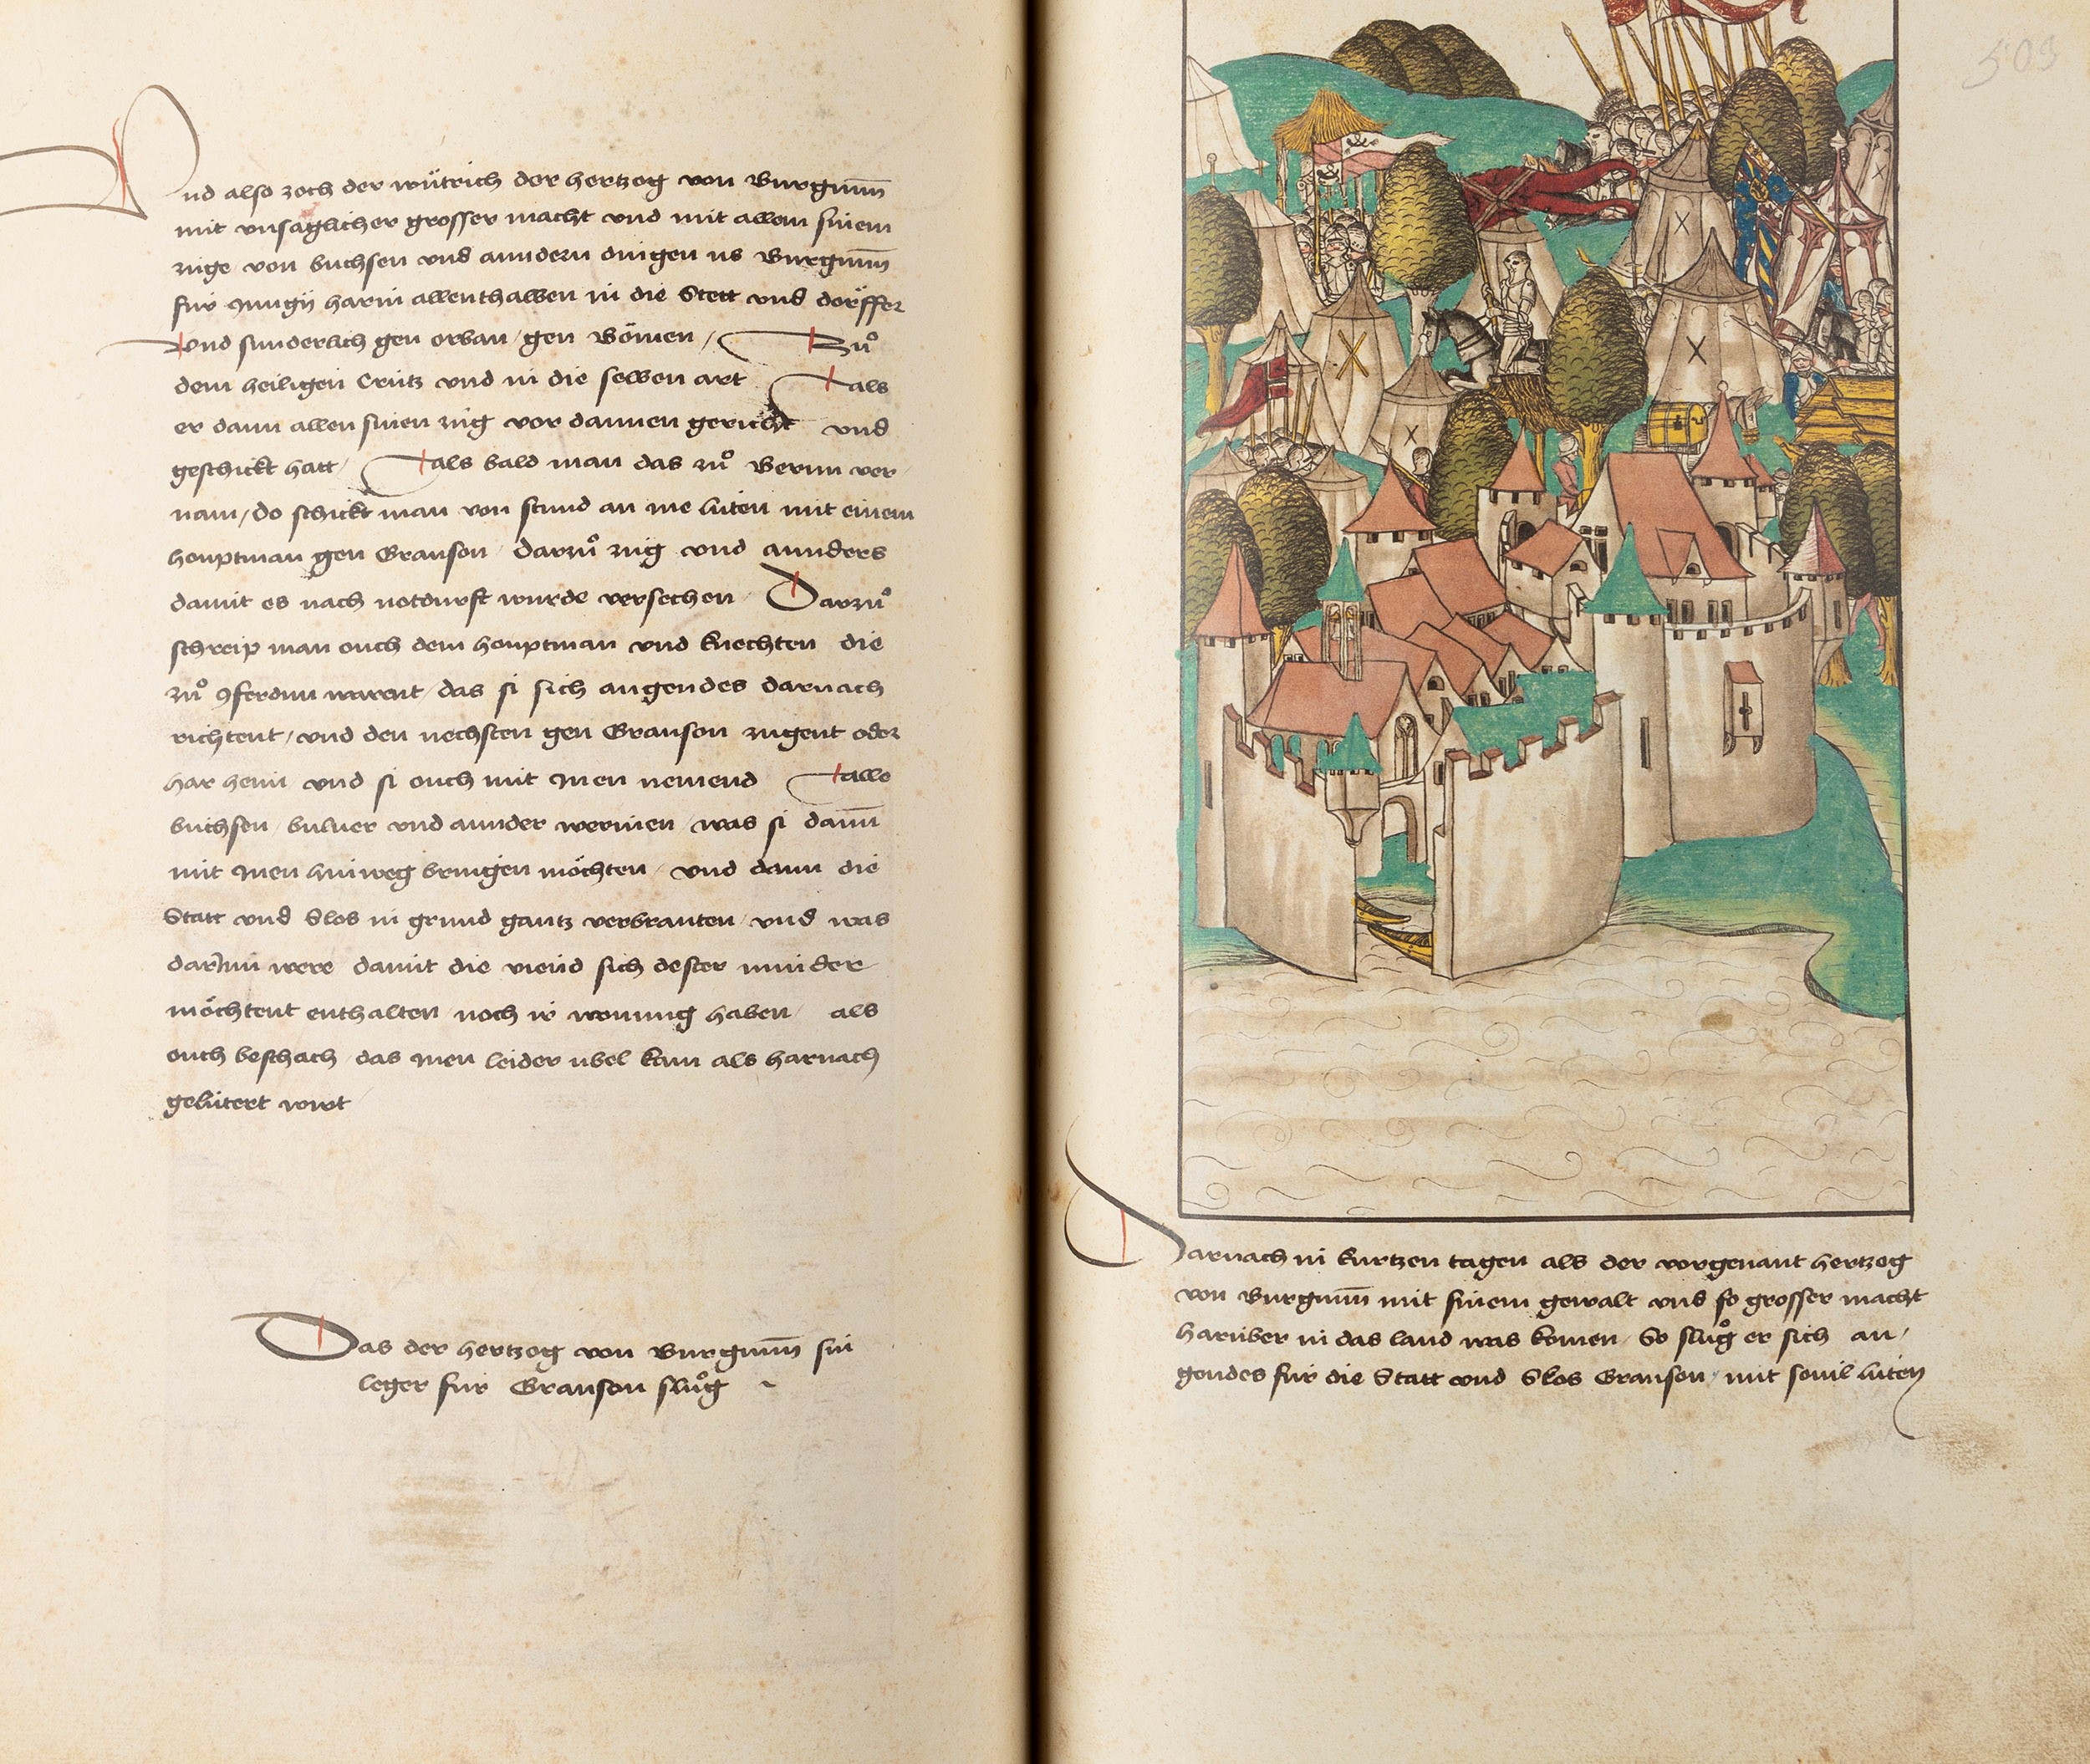 Und also zoch der wütrich der hertzog von Burgunn̄
mit unsäglicher grosser macht und mit allem sinem
zuge von buchsen und anndern dingen us Burgunn̄
für Jungÿ harin allenthalben in die Stett und dörffer
und sunderlich gen orban / gen Bömen / Zů
dem heiligen Crütz und in die selben art als
er dann allen sinen züg vor dannen gericht und
geschickt hatt / als bald man das zů Bernn ver
nam / do schickt man von stund an me lüten mit einem
houptman gen Granson darzů züg und annders
damit es nach notdurfft wurde versechen Darzů
schreip man ouch dem houptman und knechten die
zů yferdnn warent / das si sich angendes darnach
richtent / und den nechsten gen Granson zugent oder
har heim und si ouch mit Inen nemend alle
buchsen / bulver und annder werinen was si dann̄
mit Inen hinweg bringen möchten / und dann die
Statt und Slos in grund gantz verbranten / und was
darInn were damit die viend sich dester minder
möchtent enthalten noch ir wonung haben / als
ouch beschach / das Inen leider übel kam als harnach
gelütert wirt
Das der hertzog von Burgunn̄ sin
leger für Granson slůg
503
Darnach in kurtzen tagen als der vorgenant hertzog
von Burgunn̄ mit sinem gewalt und so grosser macht
harüber in das land was komen / So slůg er sich an /
gendes für die Statt und Slos Granson / mit sovil lüten